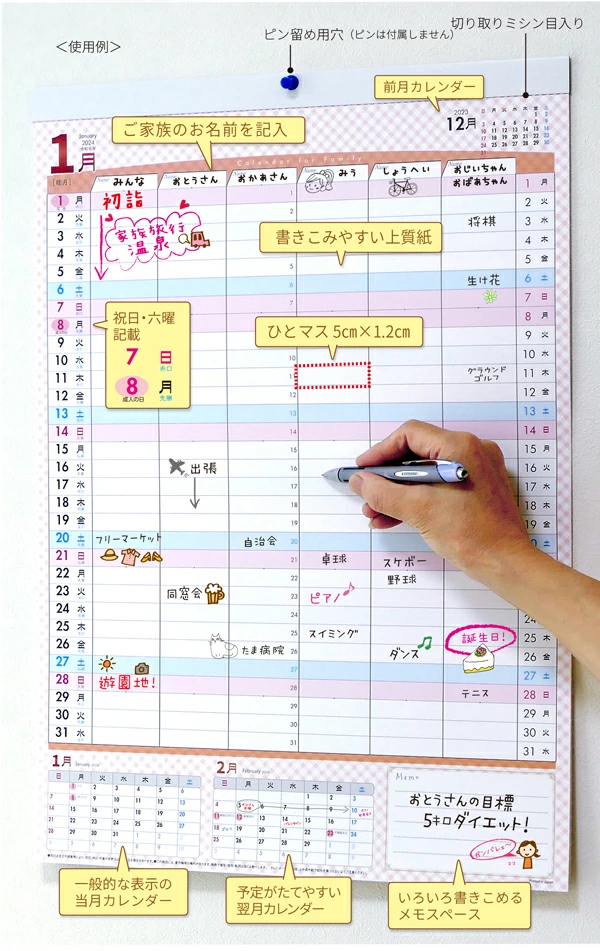 ＜使用例＞
ピン留め用穴（ピンは付属しません）
切り取りミシン目入り
前月カレンダー
ご家族のお名前を記入
1月
January
2024
2023
12月
Calendar for Family
みんな
おとうさん
おかあさん
みう
しょうへい
おじいちゃん
おばあちゃん
初詣
家族旅行
温泉
将棋
書きこみやすい上質紙
生け花
祝日・六曜
記載
7 日
赤口
8 月
成人の日
先勝
ひとマス 5cm×1.2cm
グラウンド
ゴルフ
出張
フリーマーケット
自治会
卓球
スケボー
野球
同窓会
ピアノ
スイミング
誕生日!
たま病院
ダンス
遊園地!
テニス
1 月
2 火
3 水
4 木
5 金
6 土
7 日
8 月
9 火
10 水
11 木
12 金
13 土
14 日
15 月
16 火
17 水
18 木
19 金
20 土
21 日
22 月
23 火
24 水
25 木
26 金
27 土
28 日
29 月
30 火
31 水
1月
January
日 月 火 水 木 金 土
2月
February
日 月 火 水 木 金 土
Memo
おとうさんの目標
5キロダイエット!
ガンバレェ〜
一般的な表示の
当月カレンダー
予定がたてやすい
翌月カレンダー
いろいろ書きこめる
メモスペース